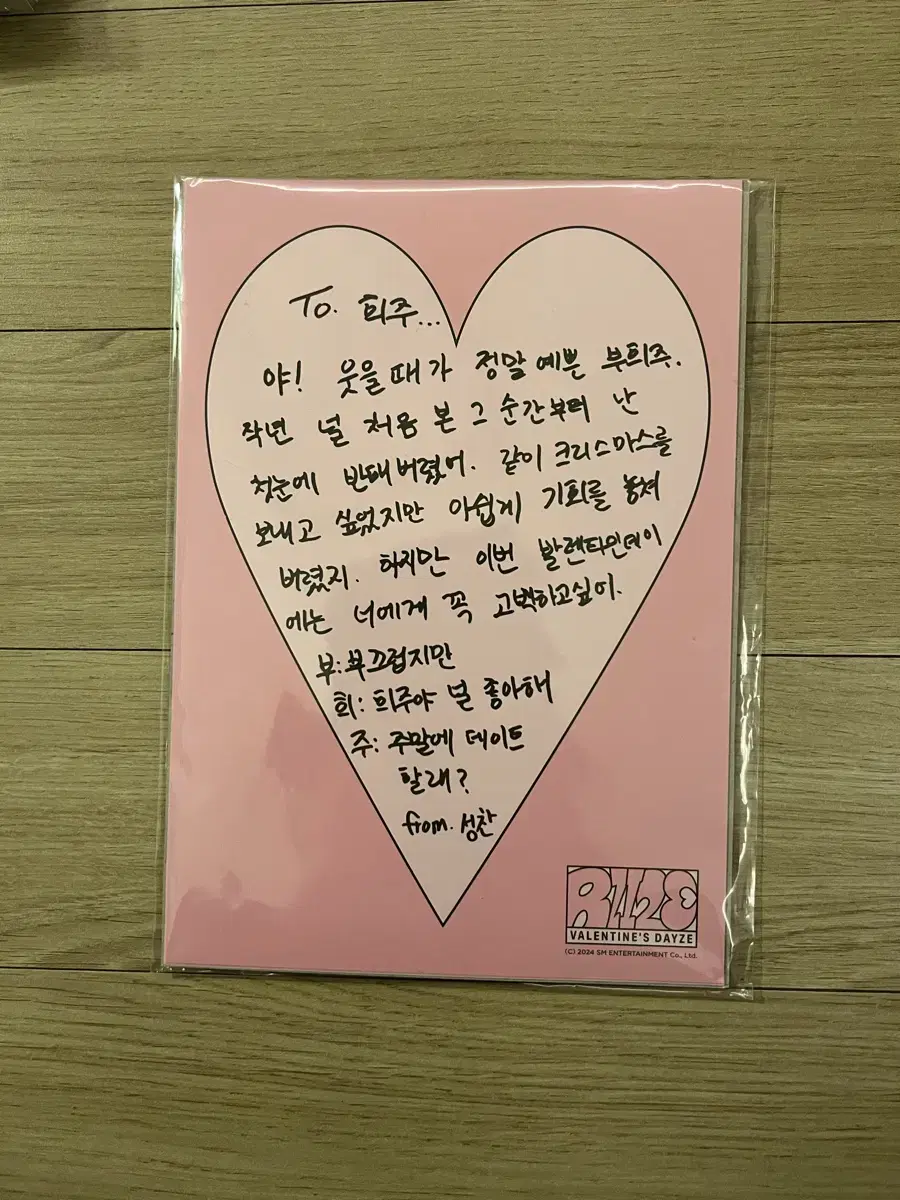 To. 희주...
야! 웃을때가 정말 예쁜 부희주.
작년 널 처음 본 그 순간부터 난
첫눈에 반해버렸어. 같이 크리스마스를
보내고 싶었지만 아쉽게 기회를 놓쳐
버렸지. 하지만 이번 발렌타인데이
에는 너에게 꼭 고백하고싶어.
부:부끄럽지만
희: 희주야 널 좋아해
주: 주말에 데이트
할래?
from. 성찬
RIIZE
VALENTINE'S DAYZE
(C) 2024 SM ENTERTAINMENT Co., Ltd.